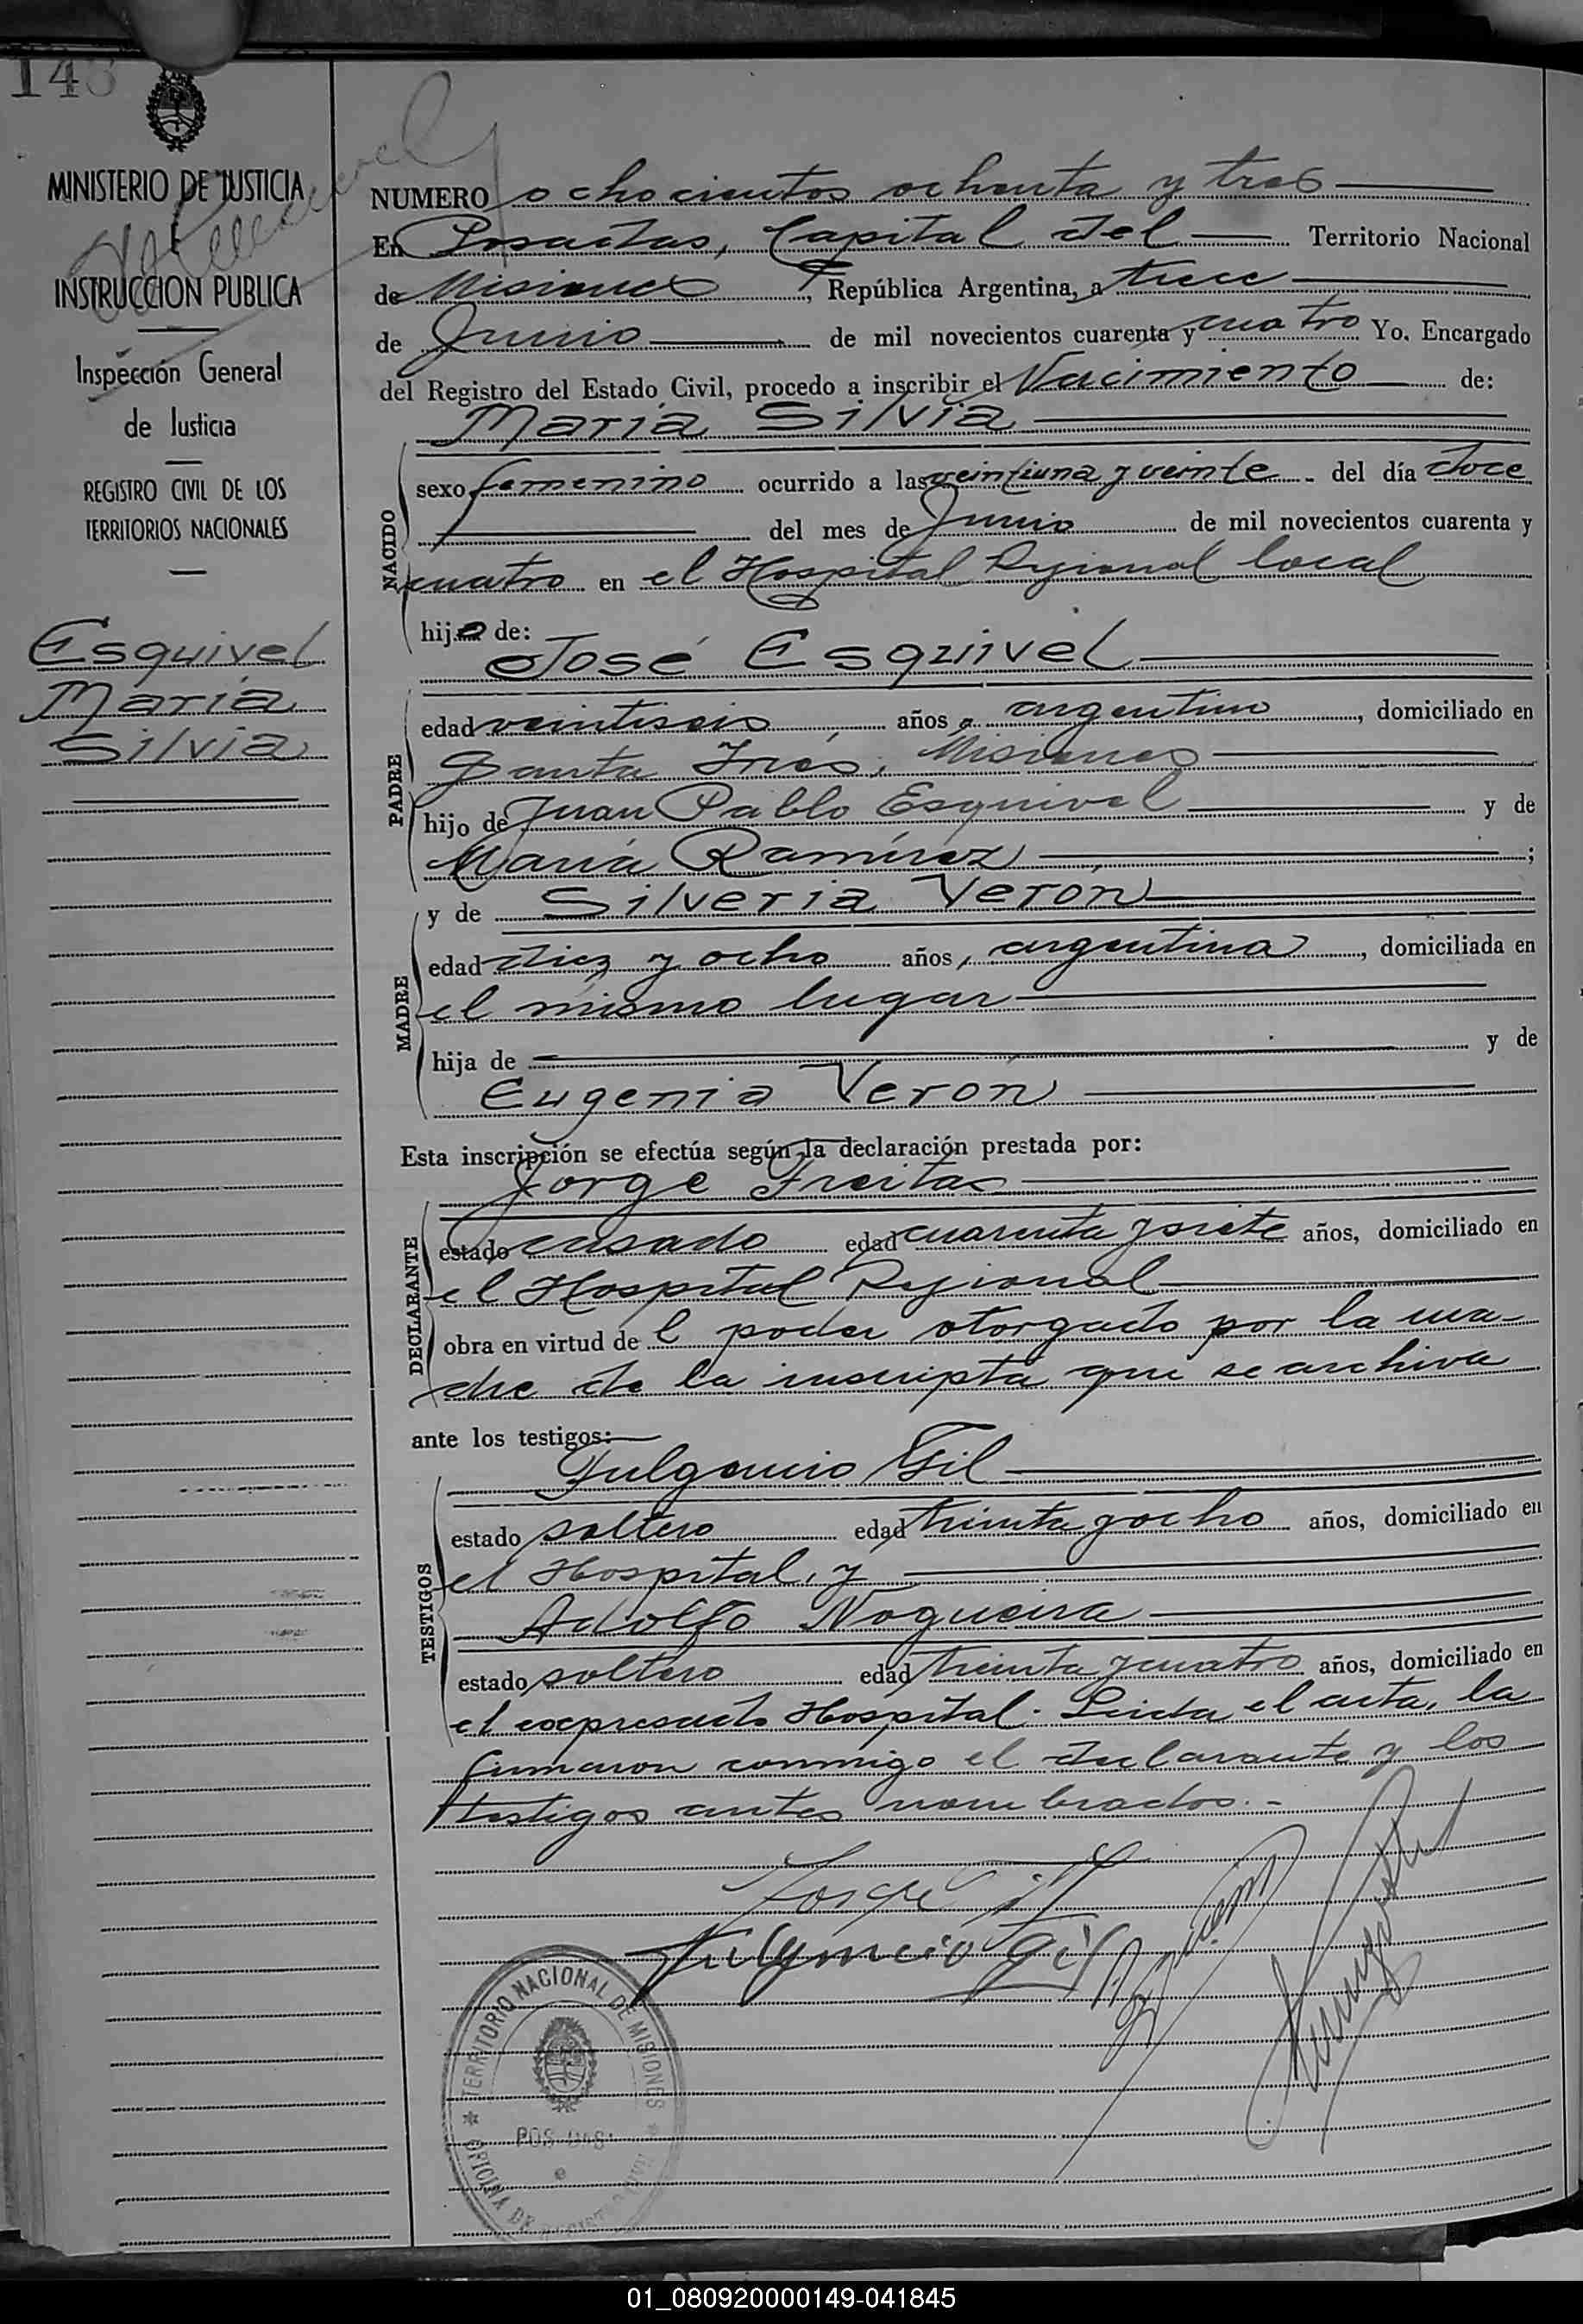 14
MINISTERIO DE JUSTICIA
E
INSTRUCCION PUBLICA
Inspección General
de Justicia
REGISTRO CIVIL DE LOS
TERRITORIOS NACIONALES
Esquivel
María
Silvia
NUMERO ochocientos ochenta y tres
En Posadas, Capital del Territorio Nacional
de Misiones, República Argentina, a trece
de Junio de mil novecientos cuarenta y cuatro Yo. Encargado
del Registro del Estado Civil, procedo a inscribir el Nacimiento de:
María Silvia
NACIDO
sexo femenino ocurrido a las veintiuna y veinte del día doce
del mes de Junio de mil novecientos cuarenta y
cuatro en el Hospital Regional local
hija de:
José Esquivel
PADRE
edad veintiseis años, argentino, domiciliado en
Santa Inés, Misiones
hijo de Juan Pablo Esquivel y de
María Ramírez;
y de Silveria Verón
MADRE
edad diez y ocho años, argentina, domiciliada en
el mismo lugar
hija de y de
Eugenia Verón
Esta inscripción se efectúa según la declaración prestada por:
Jorge Freitas
DECLARANTE
estado casado edad cuarenta y siete años, domiciliado en
el Hospital Regional
obra en virtud de l poder otorgado por la ma-
dre de la inscripta que se archiva
ante los testigos:
Fulgencio Gil
TESTIGOS
estado soltero edad treinta y ocho años, domiciliado en
el Hospital, y
Adolfo Nogueira
estado soltero edad treinta y cuatro años, domiciliado en
el expresado Hospital. Leida el acta, la
firmaron conmigo el declarante y los
testigos antes nombrados.-
Jorge
Fulgencio Gil
TERRITORIO NACIONAL DE MISIONES
OFICINA DE
01_080920000149-041845